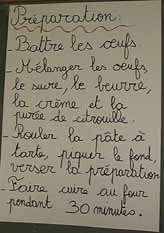 Préparation:
- Battre les œufs
- Mélanger les œufs,
le sucre, le beurre,
la crème et la
purée de citrouille.
- Rouler la pâte à
tarte, piquer le fond,
verser la préparation
- Faire cuire au four
pendant 30 minutes.